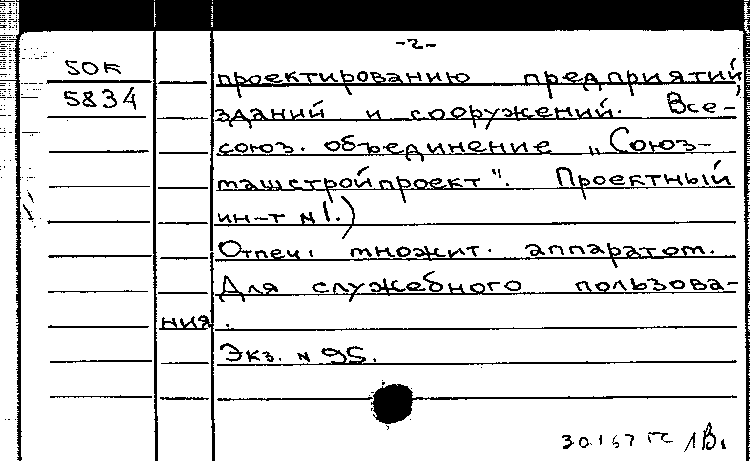 -2-
50к
5834
проектированию предприятий,
зданий и сооружений. Все-
союз. объединение „Союз-
машстройпроект". Проектный
ин-т №1.)
Отпеч. множит. аппаратом.
Для служебного пользова-
ния.
Экз. № 95.